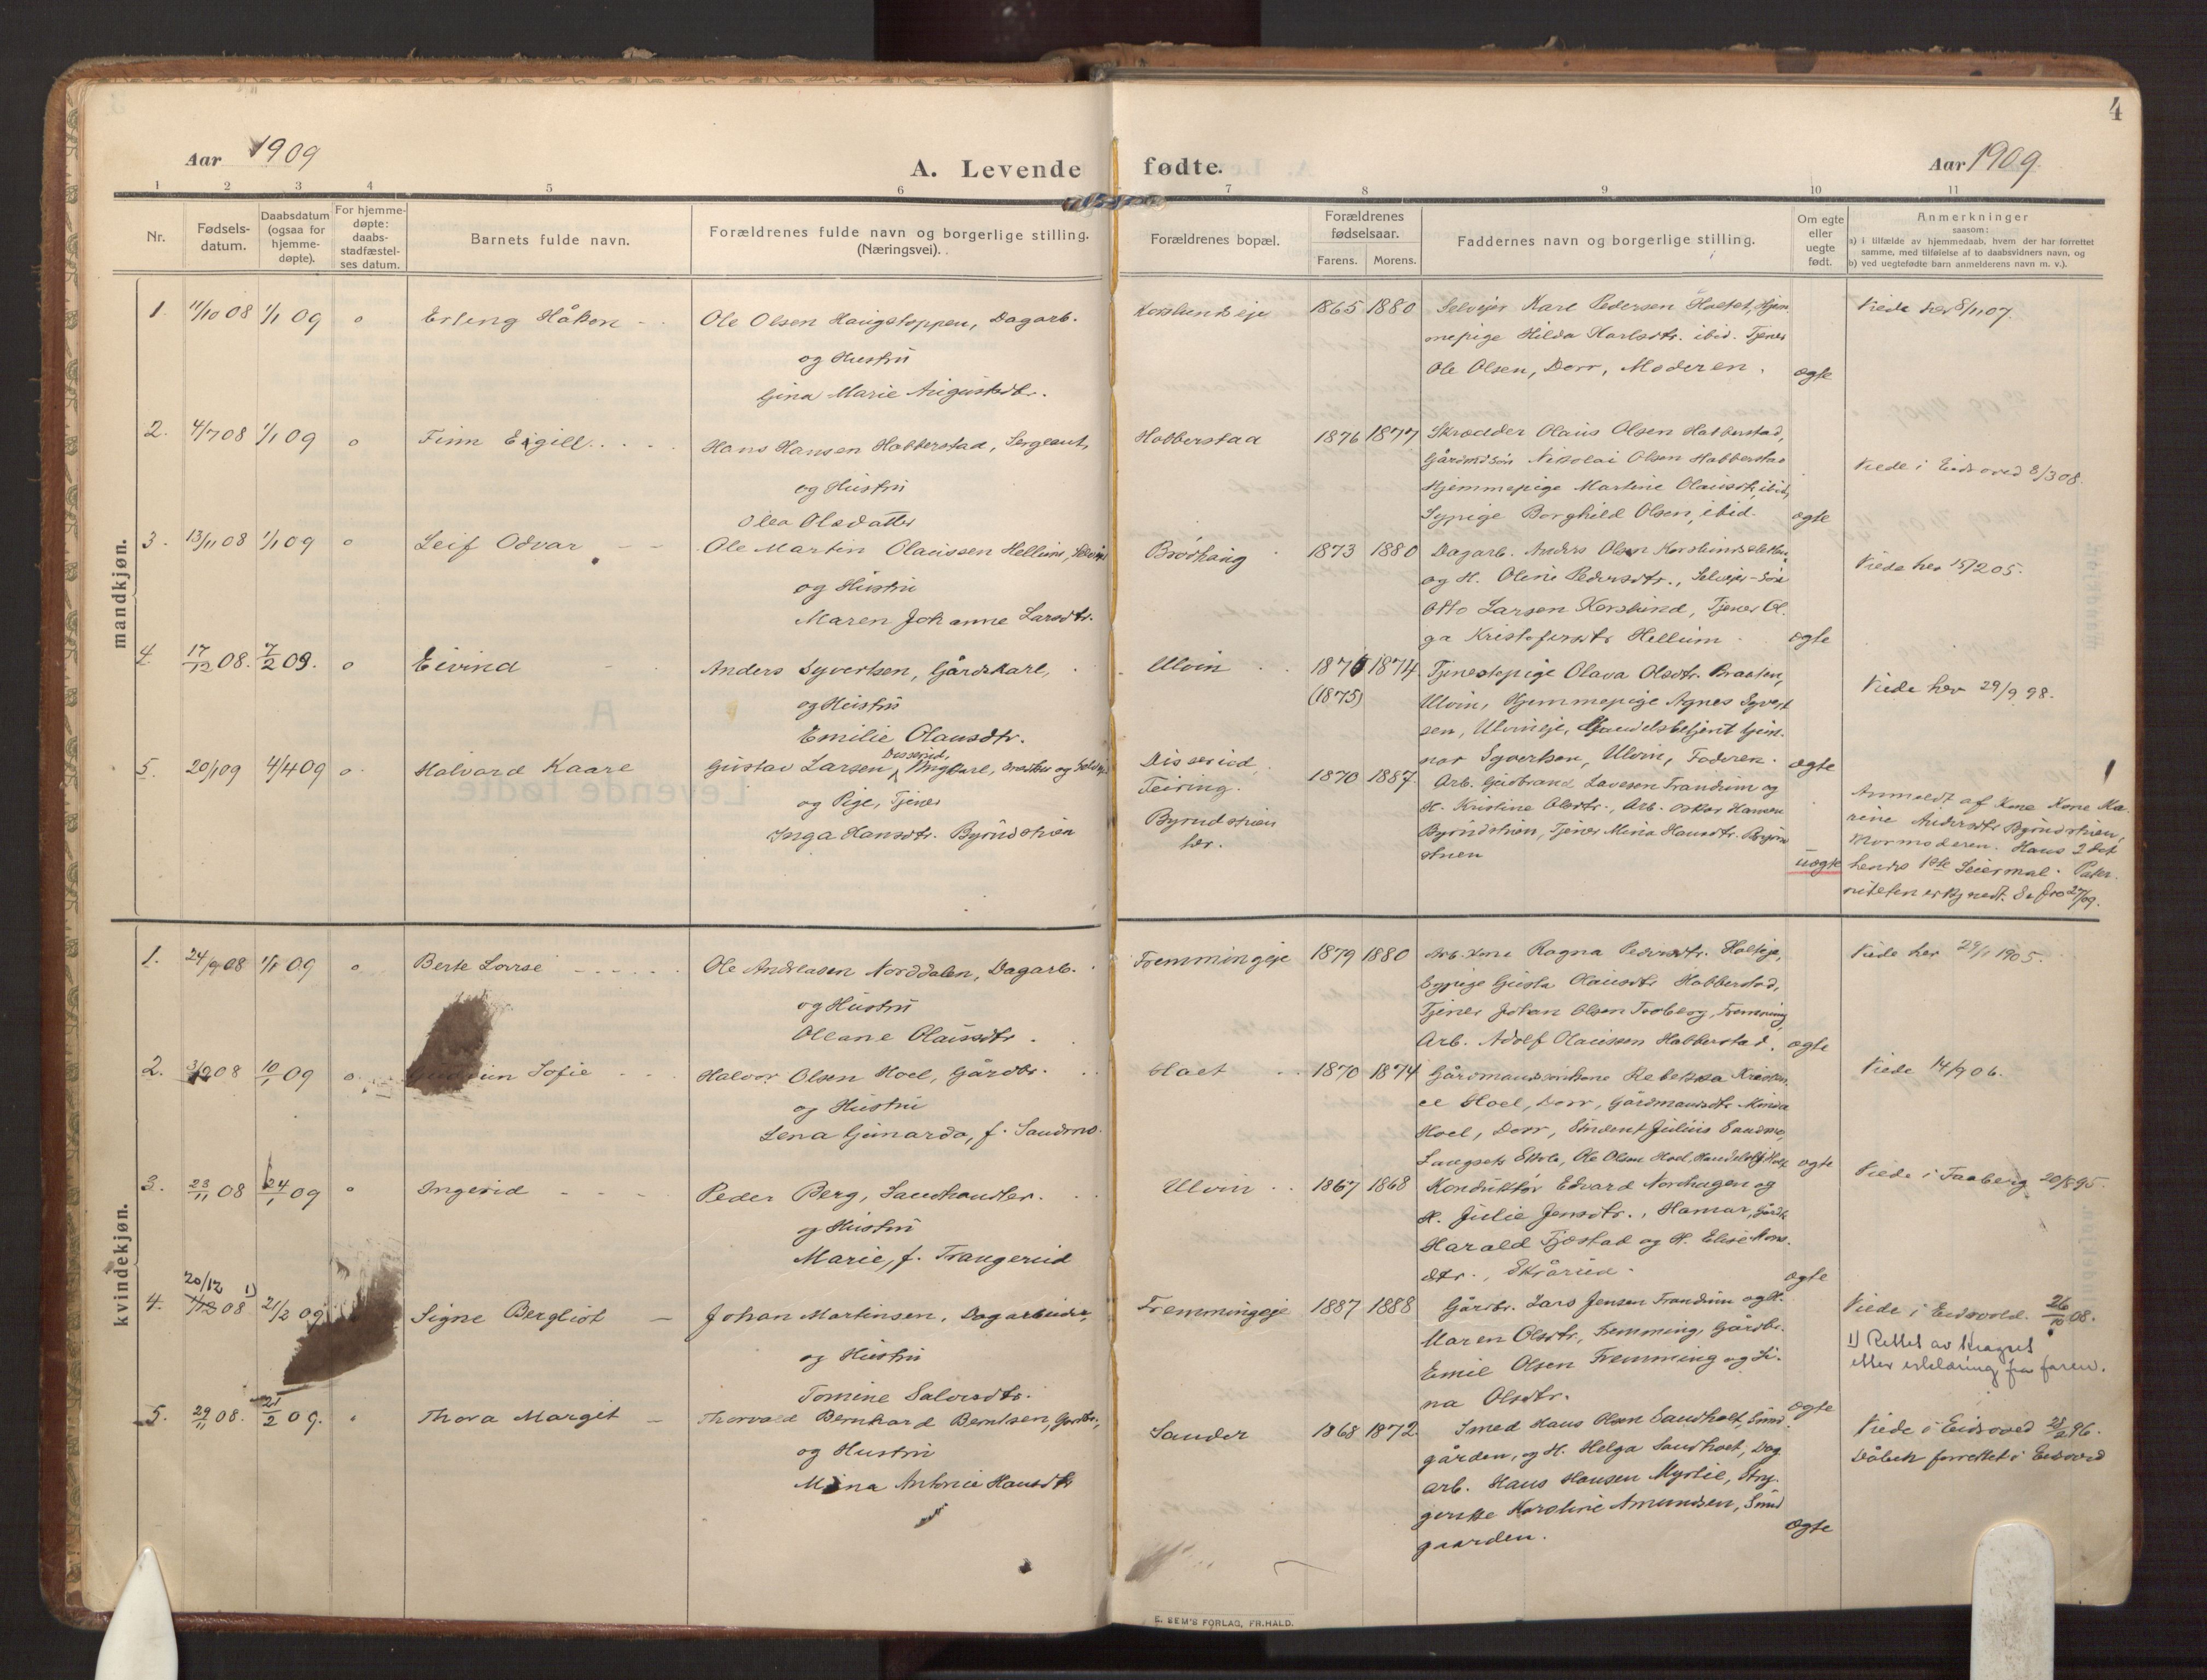 4
Aar 1909
A. Levende fødte.
Aar 1909
1 2 3 4 5 6 7 8 9 10 11
Nr.
Fødsels-
datum.
Daabsdatum
(ogsaa for
hjemme-
døpte).
For hjemme-
døpte:
daabs-
stadfæstel-
ses datum.
Barnets fulde navn.
Forældrenes fulde navn og borgerlige stilling.
(Næringsvei).
Forældrenes bopæl.
Forældrenes
fødselsaar.
Farens. Morens.
Faddernes navn og borgerlige stilling.
Om egte
eller
uegte
født.
Anmerkninger
saasom:
a) i tilfælde av hjemmedaab, hvem der har forrettet
samme, med tilføielse af to daabsvidners navn, og
b) ved uegtefødte barn anmelderens navn m. v.).
mandkjøn.
1. 11/10 08 1/1 09 o Erling Håkon
Ole Olsen Haugstoppen, Dagarb.
og Hustru
Gina Marie Augustsdtr.
1865 1880
Selvejer Karl Pedersen Holtet, Hjem
mepige Hilda Karlsdtr. ibid. Tjener
Ole Olsen, Dorr, Moderen.
ægte
Viede her 8/11 07.
2. 4/7 08 1/1 09 o Finn Eigill
Hans Hansen Habberstad, Sergeant,
og Hustru
Olea Olsdatter
Habberstad
1876 1877
Skrædder Olaus Olsen Habberstad,
Gårdmdsøn Nikolai Olsen Habberstad
Hjemmepige Martine Olausdtr, ibid,
Sypige Borghild Olsen, ibid.
ægte
Viede i Eidsvold 8/3 08.
3. 13/11 08 1/1 09 o Leif Odvar
Ole Martin Olaussen Hellum, Selvejer
og Hustru
Maren Johanne Larsdtr.
Brødhaug
1873 1880
Dagarb. Anders Olsen
og H. Oline Pedersdtr., Selvejer-Søn
Otto Larsen Korslund, Tjener Ol-
ga Kristofersdtr Hellum
ægte
Viede her 15/2 05.
4. 17/12 08. 7/2 09. o Eivind
Anders Syvertsen, Gårdskarl,
og Hustru
Emilie Olausdtr.
Ulvin
1876 1874.
(1875)
Tjenestepige Olava Olsdtr. Braaten,
Ulvin, Hjemmepige Agnes Syvert
sen, Ulvineje, Handelsbetjent Gun-
nar Syvertsen, Ulvin, Faderen.
ægte
Viede her 29/9 98.
5. 20/1 09 4/4 09 o. Halvard Kaare
Disserud,
Gustav Larsen, Ungkarl,
og Pige, Tjener
Inga Hansdtr. Byrudstuen
Disserud,
Feiring.
Byrudstuen
her.
1870 1887.
Arb. Gudbrand Larsen Trandum og
H. Kristine Olsdtr., Arb. Oskar Hansen
Byrudstuen, Tjener Mina Hansdtr. Byrud
stuen
uægte
Anmeldt af Kone Kone Ka-
rine Andersdtr Byrudstuen,
Mormoderen. Hans 2det
hendes 1ste Leiermal. Pater-
niteten erkjendt.
kvindekjøn.
1. 24/9 08 1/1 09 o Berte Lovise
Ole Andreasen Norddalen, Dagarb.
og Hustru
Oleane Olausdtr.
Fremmingeje
1879 1880
Arb. Kone Ragna Pedersdtr. Holteje,
Sypige Gusta Olausdtr Habberstad,
Tjener Johan Olsen Torberg, Fremming
Arb. Adolf Olaussen Habberstad.
ægte
Viede her 29/1 1905.
2. 08 10/1 09 o Sofie
Halvor Olsen Hoel, Gårdbr.
og Hustru
Lena Gunarda, f. Sandmo.
Hoel
1870 1874
Rebekka
Hoel, Dorr, Gårdmandsdtr. Minda
Hoel, Dorr, Student Julius Sandmo,
Langset Skole, Ole Olsen Hoel,
ægte
Viede 14/9 06.
3. 23/11 08 24/1 09 o Ingerid
Peder Berg, Landhandler.
og Hustru
Marie, f. Trangerud
Ulvin
1867 1868
Konduktør Edvard Norhagen og
H. Julie Jensdtr., Hamar, Gårdb.
Harald Fjøstad og H. Elise Mons-
dtr., Skårud.
ægte
Viede i Faaberg 20/8 95.
20/12 1)
4. 08 21/2 09 Signe Bergliot
Johan Martinsen, Dagarbeider,
og Hustru
Tomine Salvesdtr.
Fremmingeje
1887 1888
Gårdbr. Lars Jensen Trandum og H.
Maren Olsdtr, Fremming, Gårdbr.
Emil Olsen Fremming og Li-
na Olsdtr.
ægte
Viede i Eidsvold. 26/10 08.
1) Rettet av
etter erklæring fra faren.
5. 29/11 08. 21/2 09. Thora Margit
Thorvald Bernhard Berntsen, Gårdbr.,
og Hustru
Mina Antonie Hansdtr
Sander
1868 1872.
Smed Hans Olsen Sandholt, Sund
gården, og H. Helga Sandholt, Dag
arb. Hans Hansen Myrlie, Stry-
gerske Karoline Amundsen, Sund
gaarden.
ægte
Viede i Eidsvold 28/2 96.
Dåben forrettet i Eidsvold
E. SEM'S FORLAG, FR.HALD.